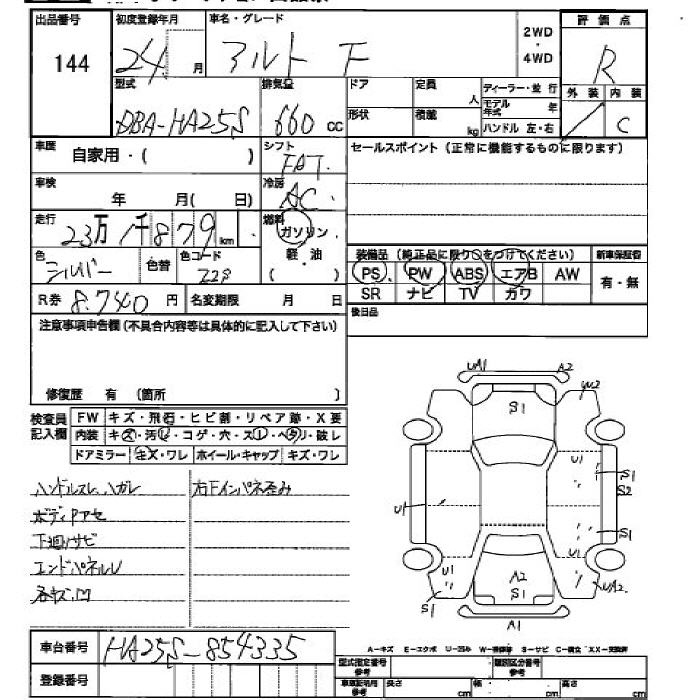 出品番号 初度登録年月 車名・グレード 2WD・4WD 評価点
144 24 月 アルト F R
型式 排気量 ドア 定員 人 ディーラー・並行 外装 内装
DBA-HA25S 660 cc 形状 積載 kg モデル年式 年 C
ハンドル 左・右
車歴 自家用・( ) シフト FAT セールスポイント(正常に機能するものに限ります)
車検 年 月( 日) 冷房 AC
走行 23万1千879km 燃料 ガソリン
軽・油
( )
装備品(純正品に限り○をつけてください) 新車保証書
色 シルバー 色替 色コード Z2S
PS PW ABS エアB AW 有・無
SR ナビ TV カワ
R券 8.740 円 名変期限 月 日
後日品
注意事項申告欄(不具合内容等は具体的に記入して下さい)
修復歴 有 (箇所 )
検査員記入欄 FW キズ・飛石・ヒビ割・リペア跡・X要
内装 キズ・汚レ・コゲ・穴・スレ・ヘタリ・破レ
ドアミラー キズ・ワレ ホイール・キャップ キズ・ワレ
ハンドルスレ、ハガレ 右下インパネ歪み
ボディアセ
下廻りサビ
エンドパネルU
各キズ凹
UA1 A2
W2
S1
U1 S1
S2
U1
S1
U1 U1
A2
S1
S1 UA2
A1
A-キズ E-エクボ U-凹み W-補修跡 S-サビ C-腐蝕 XX-交換済
車台番号 HA25S-854335
登録番号
型式指定番号 参考 類別区分番号 参考
車庫証明用 参考 長さ cm 幅 cm 高さ cm